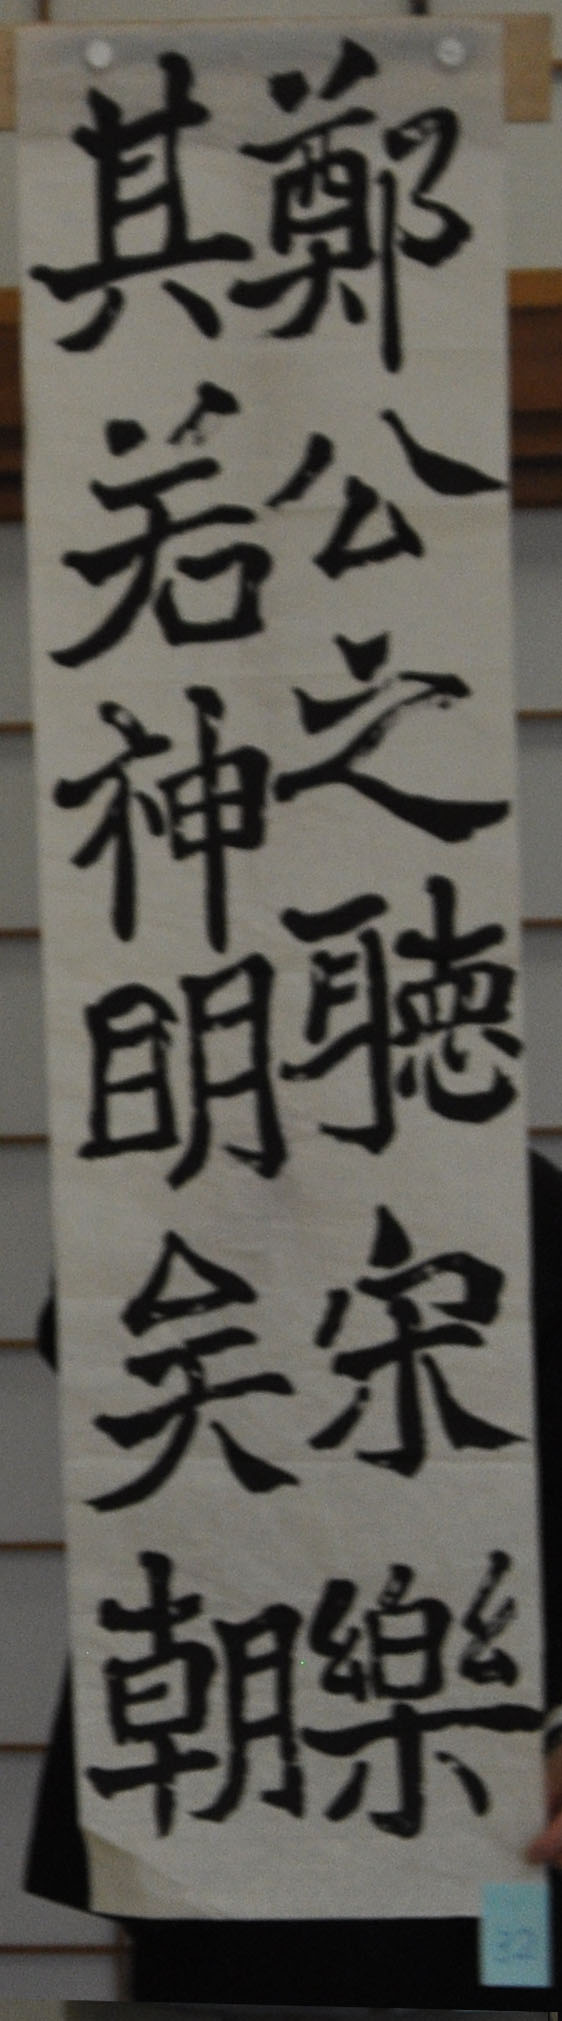 鄭公之聽宋樂
其若神明矣朝
32